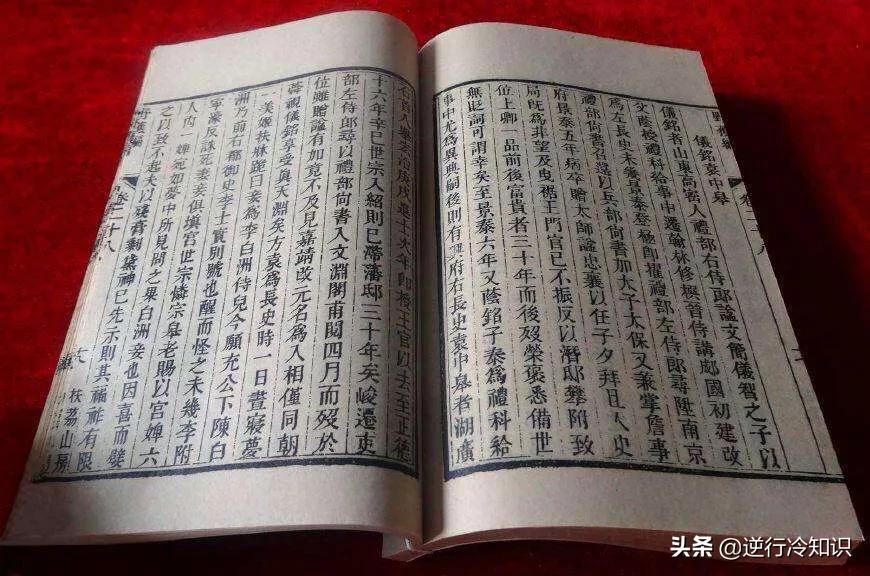 野獲編 卷二十八
儀銘袁中皋
儀銘者山東高密人禮部右侍郎諡文簡儀智之子以
父蔭授禮科給事中遷翰林修撰晉侍講郕國初建改
為左長史未幾景泰登極卽擢禮部左侍郎尋陞南京
禮部尚書召還以兵部尚書加太子太保又兼掌詹事
府景泰五年病卒贈太師諡忠襄以任子夕拜且入史
局旣為非望及曳裾王門官已不振反以潛邸攀附致
位上卿一品前後富貴者三十年而後歿榮褒悉備世
無貶詞可謂幸矣至景泰六年又蔭銘子泰為禮科給
事中尤為異典嗣後則有興府右長史袁中皋者湖廣
石首人舉宏治庚戌進士次年卽授王官以去至正德
十六年辛巳世宗入紹則已滯藩邸三十年矣峻遷吏
部左侍郎尋以禮部尚書入文淵閣甫閱四月而歿於
位雖贈諡有如竟不及見嘉靖改元名為入相僅同朝
露視儀銘享受眞天淵矣方袁為長史時一日晝寢夢
一美姬扶牀跪曰妾為李白洲侍兒今願充公下陳白
洲乃前右都御史李士實別號也醒而怪之未幾李附
寧濠反誅死妻妾俱塡官世宗憐宗皋老賜以官婢六
人內一婢宛如夢中所見問之果白洲妾也因喜而嬖
之以致不起夫以殘膏剩黛神已先示則其福祚有限
野獲編 卷二十八 扶荔山房
头条 @逆行冷知识